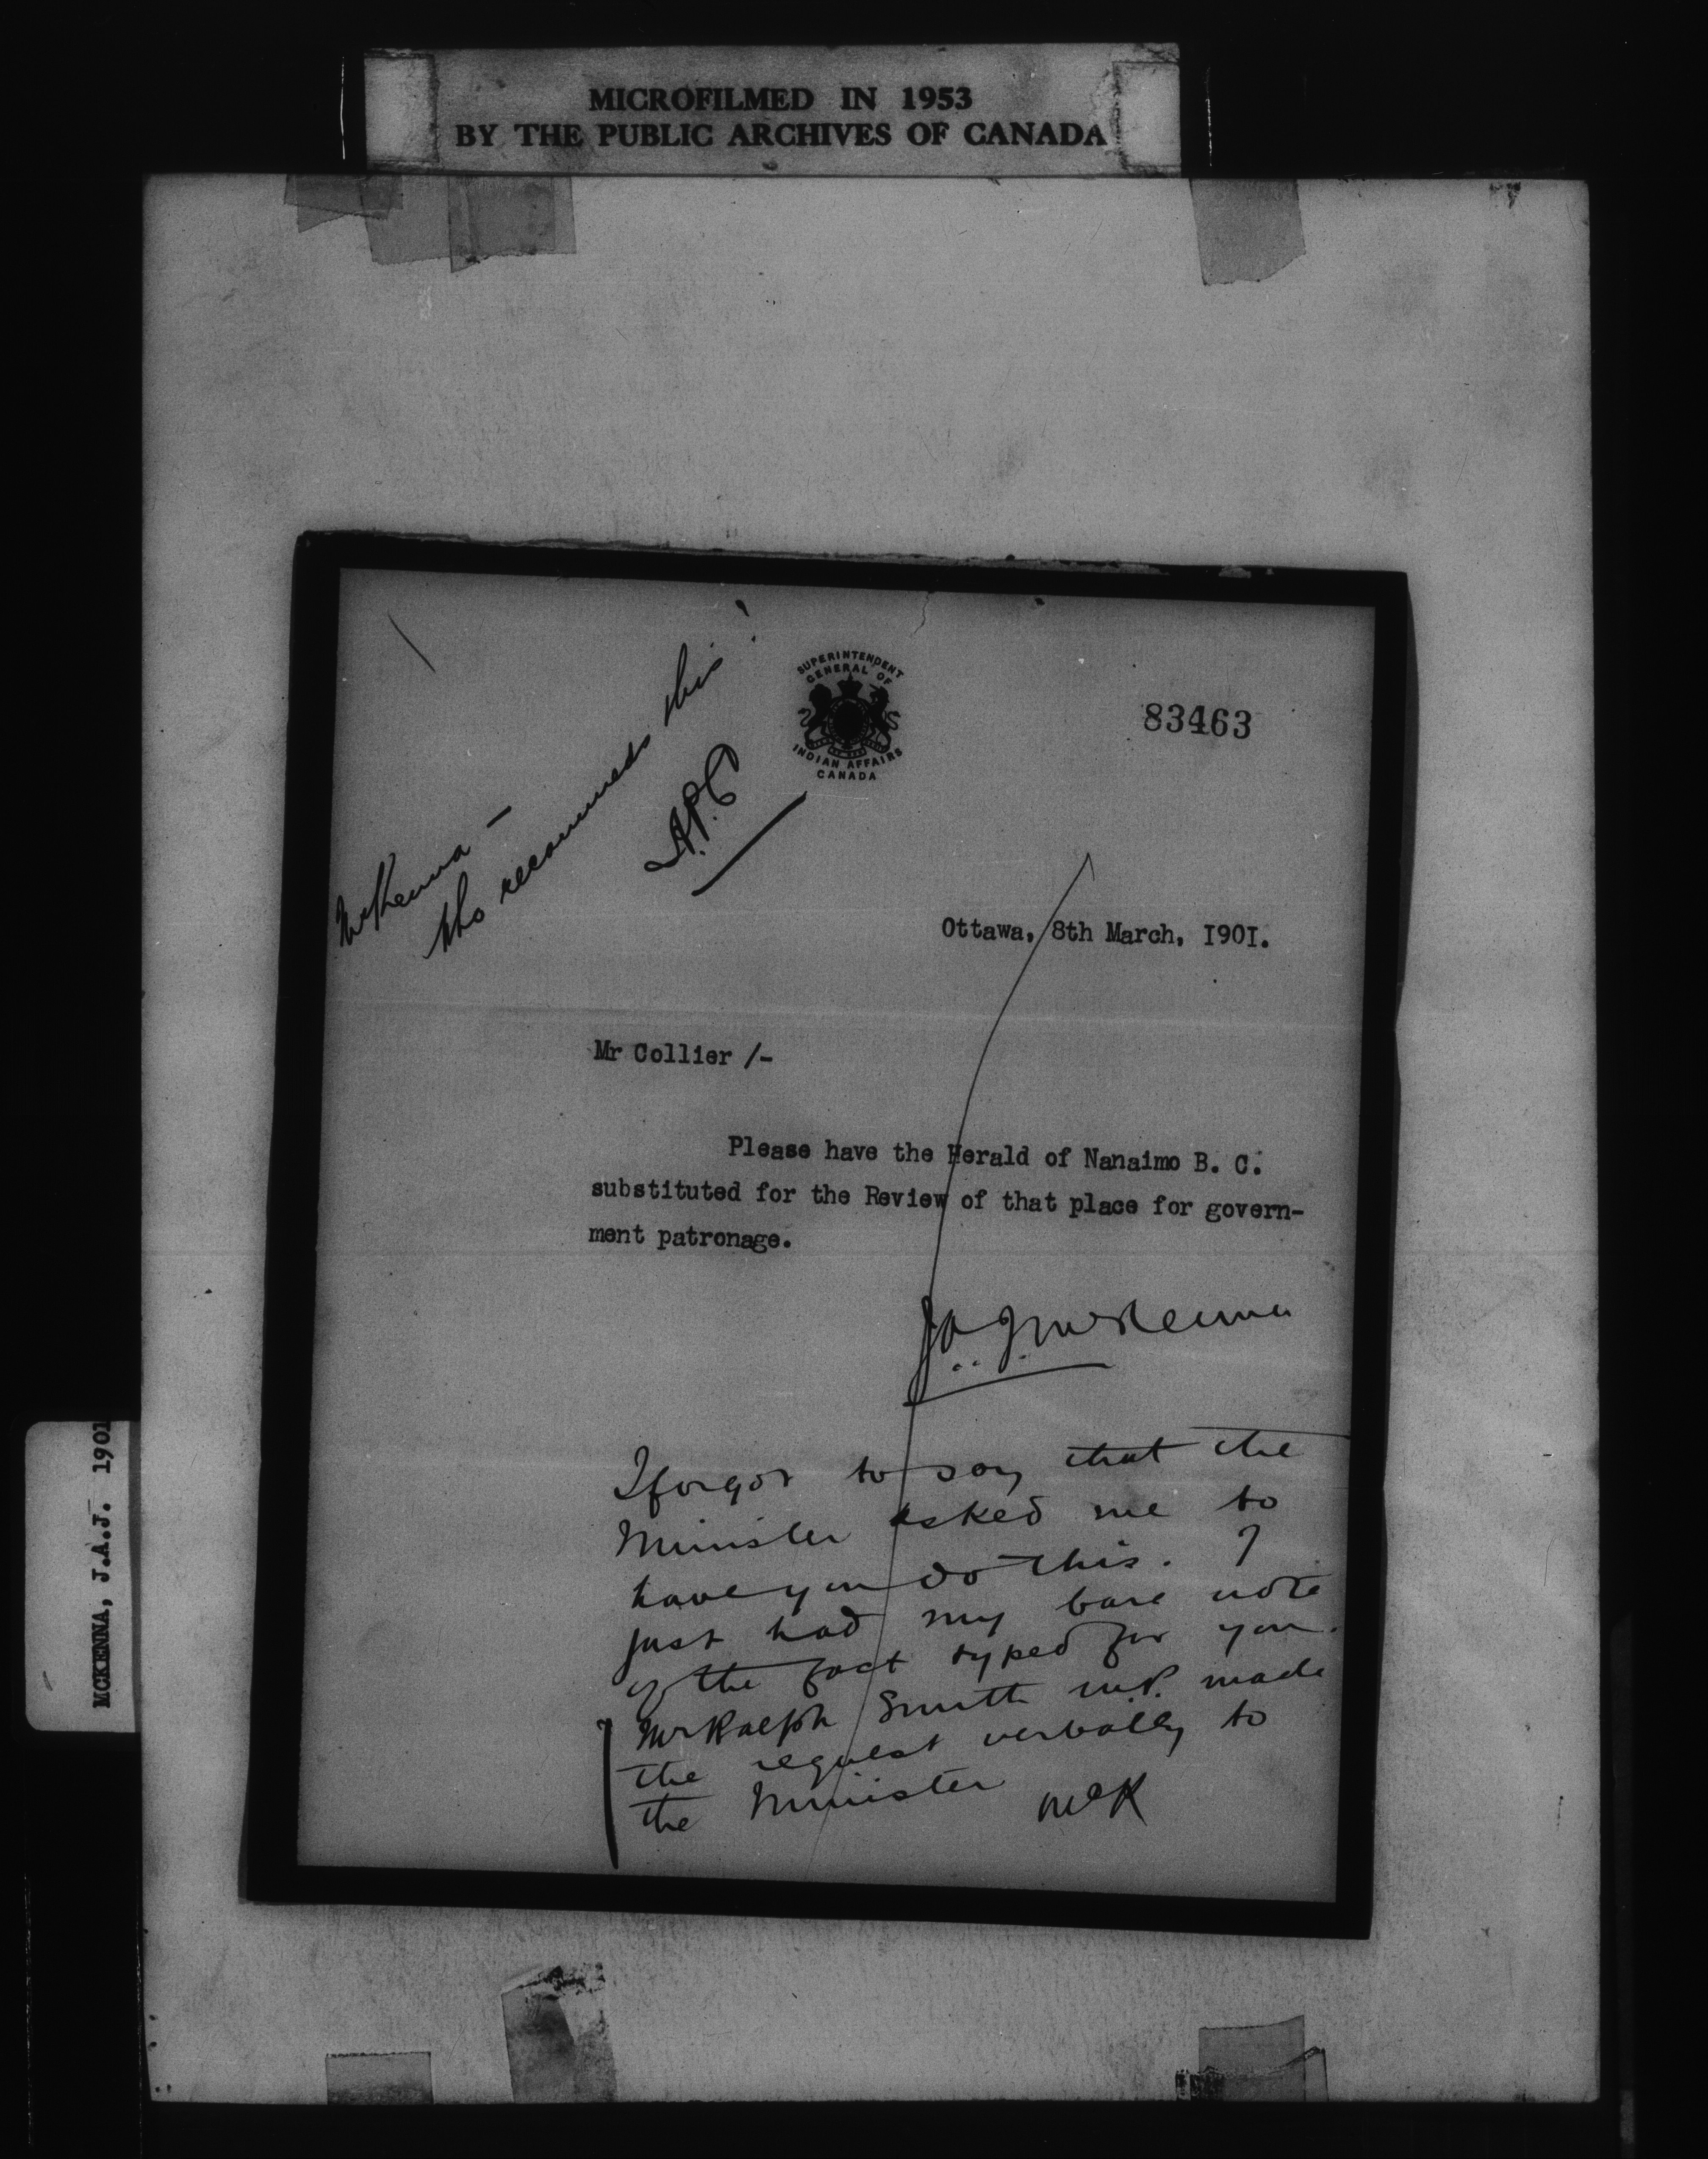 MICROFILMED IN 1953
BY THE PUBLIC ARCHIVES OF CANADA
McKenna —
Who recommends this?
A.P.C
SUPERINTENDENT
GENERAL OF
INDIAN AFFAIRS
CANADA
83463
Ottawa, 8th March, I90I.
Mr Collier /-
Please have the Herald of Nanaimo B. C.
substituted for the Review of that place for govern-
ment patronage.
J.A.J. McKenna
I forgot to say that the
Minister asked me to
have you do this. I
just had my bare note
of the fact typed for you.
Mr Ralph Smith M.P. made
the request verbally to
the Minister
McK
MCKENNA, J.A.J. 1901